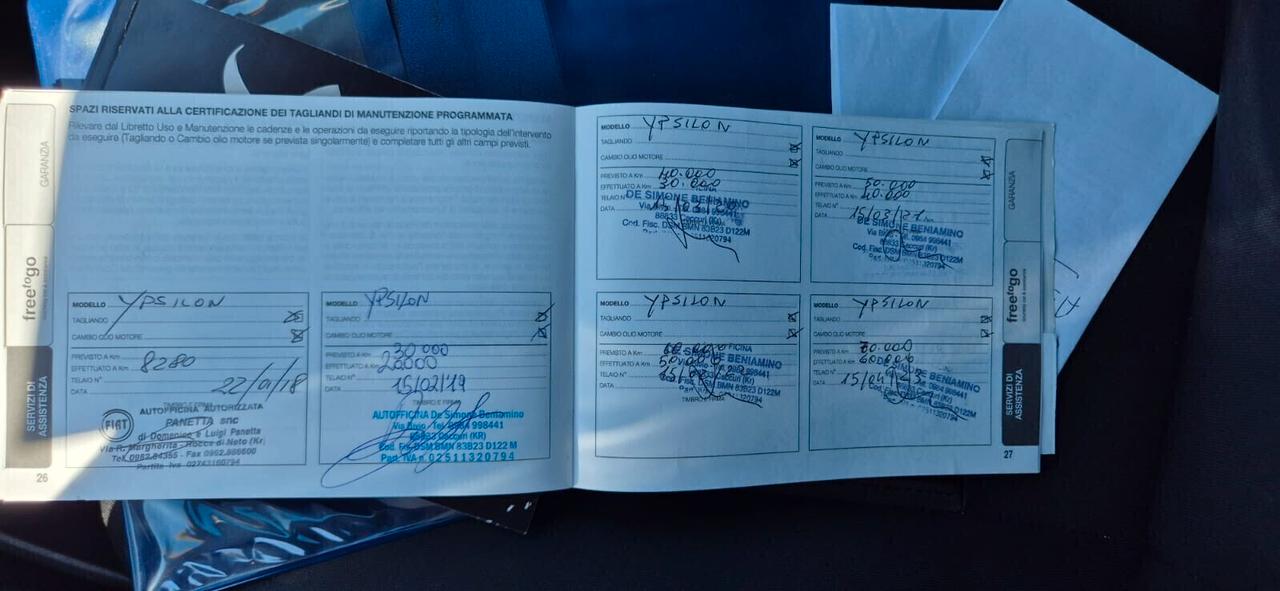 SPAZI RISERVATI ALLA CERTIFICAZIONE DEI TAGLIANDI DI MANUTENZIONE PROGRAMMATA
Rilevare dal Libretto Uso e Manutenzione le cadenze e le operazioni da eseguire riportando la tipologia dell'intervento
da eseguire (Tagliando o Cambio olio motore se prevista singolarmente) e completare tutti gli altri campi previsti.
GARANZIA
freetogo
SERVIZI DI
ASSISTENZA
MODELLO YPSILON
TAGLIANDO
CAMBIO OLIO MOTORE
PREVISTO A Km
EFFETTUATO A Km 8280
TELAIO N°
DATA 22/01/18
TIMBRO E FIRMA
AUTOFFICINA AUTORIZZATA
FIAT
PANETTA snc
di Domenico e Luigi Panetta
Via R. Margherita - Rocca di Neto (Kr)
MODELLO YPSILON
TAGLIANDO
CAMBIO OLIO MOTORE
PREVISTO A Km 30000
EFFETTUATO A Km 20000
TELAIO N°
DATA 15/02/19
TIMBRO E FIRMA
AUTOFFICINA De Simone Beniamino
Via Bivio Tel. 0984 998441
88833 Caccuri (KR)
Cod. Fisc. DSM BMN 83B23 D122 M
Part. IVA n. 02511320794
26
MODELLO YPSILON
TAGLIANDO
CAMBIO OLIO MOTORE
PREVISTO A Km 40.000
EFFETTUATO A Km 30.000
TELAIO N°
DATA
DE SIMONE BENIAMINO
88833 Caccuri (Kr)
Cod. Fisc. DSM BMN 83B23 D122M
MODELLO YPSILON
TAGLIANDO
CAMBIO OLIO MOTORE
PREVISTO A Km 50.000
EFFETTUATO A Km 40.000
TELAIO N°
DATA 15/03/21
DE SIMONE BENIAMINO
Via Bivio Tel. 0984 998441
88833 Caccuri (Kr)
Cod. Fisc. DSM BMN 83B23 D122M
MODELLO YPSILON
TAGLIANDO
CAMBIO OLIO MOTORE
PREVISTO A Km 60.000
EFFETTUATO A Km
TELAIO N°
DATA
DE SIMONE BENIAMINO
TIMBRO E FIRMA
MODELLO YPSILON
TAGLIANDO
CAMBIO OLIO MOTORE
PREVISTO A Km 70.000
EFFETTUATO A Km
TELAIO N°
DATA
27
GARANZIA
freetogo
SERVIZI DI
ASSISTENZA